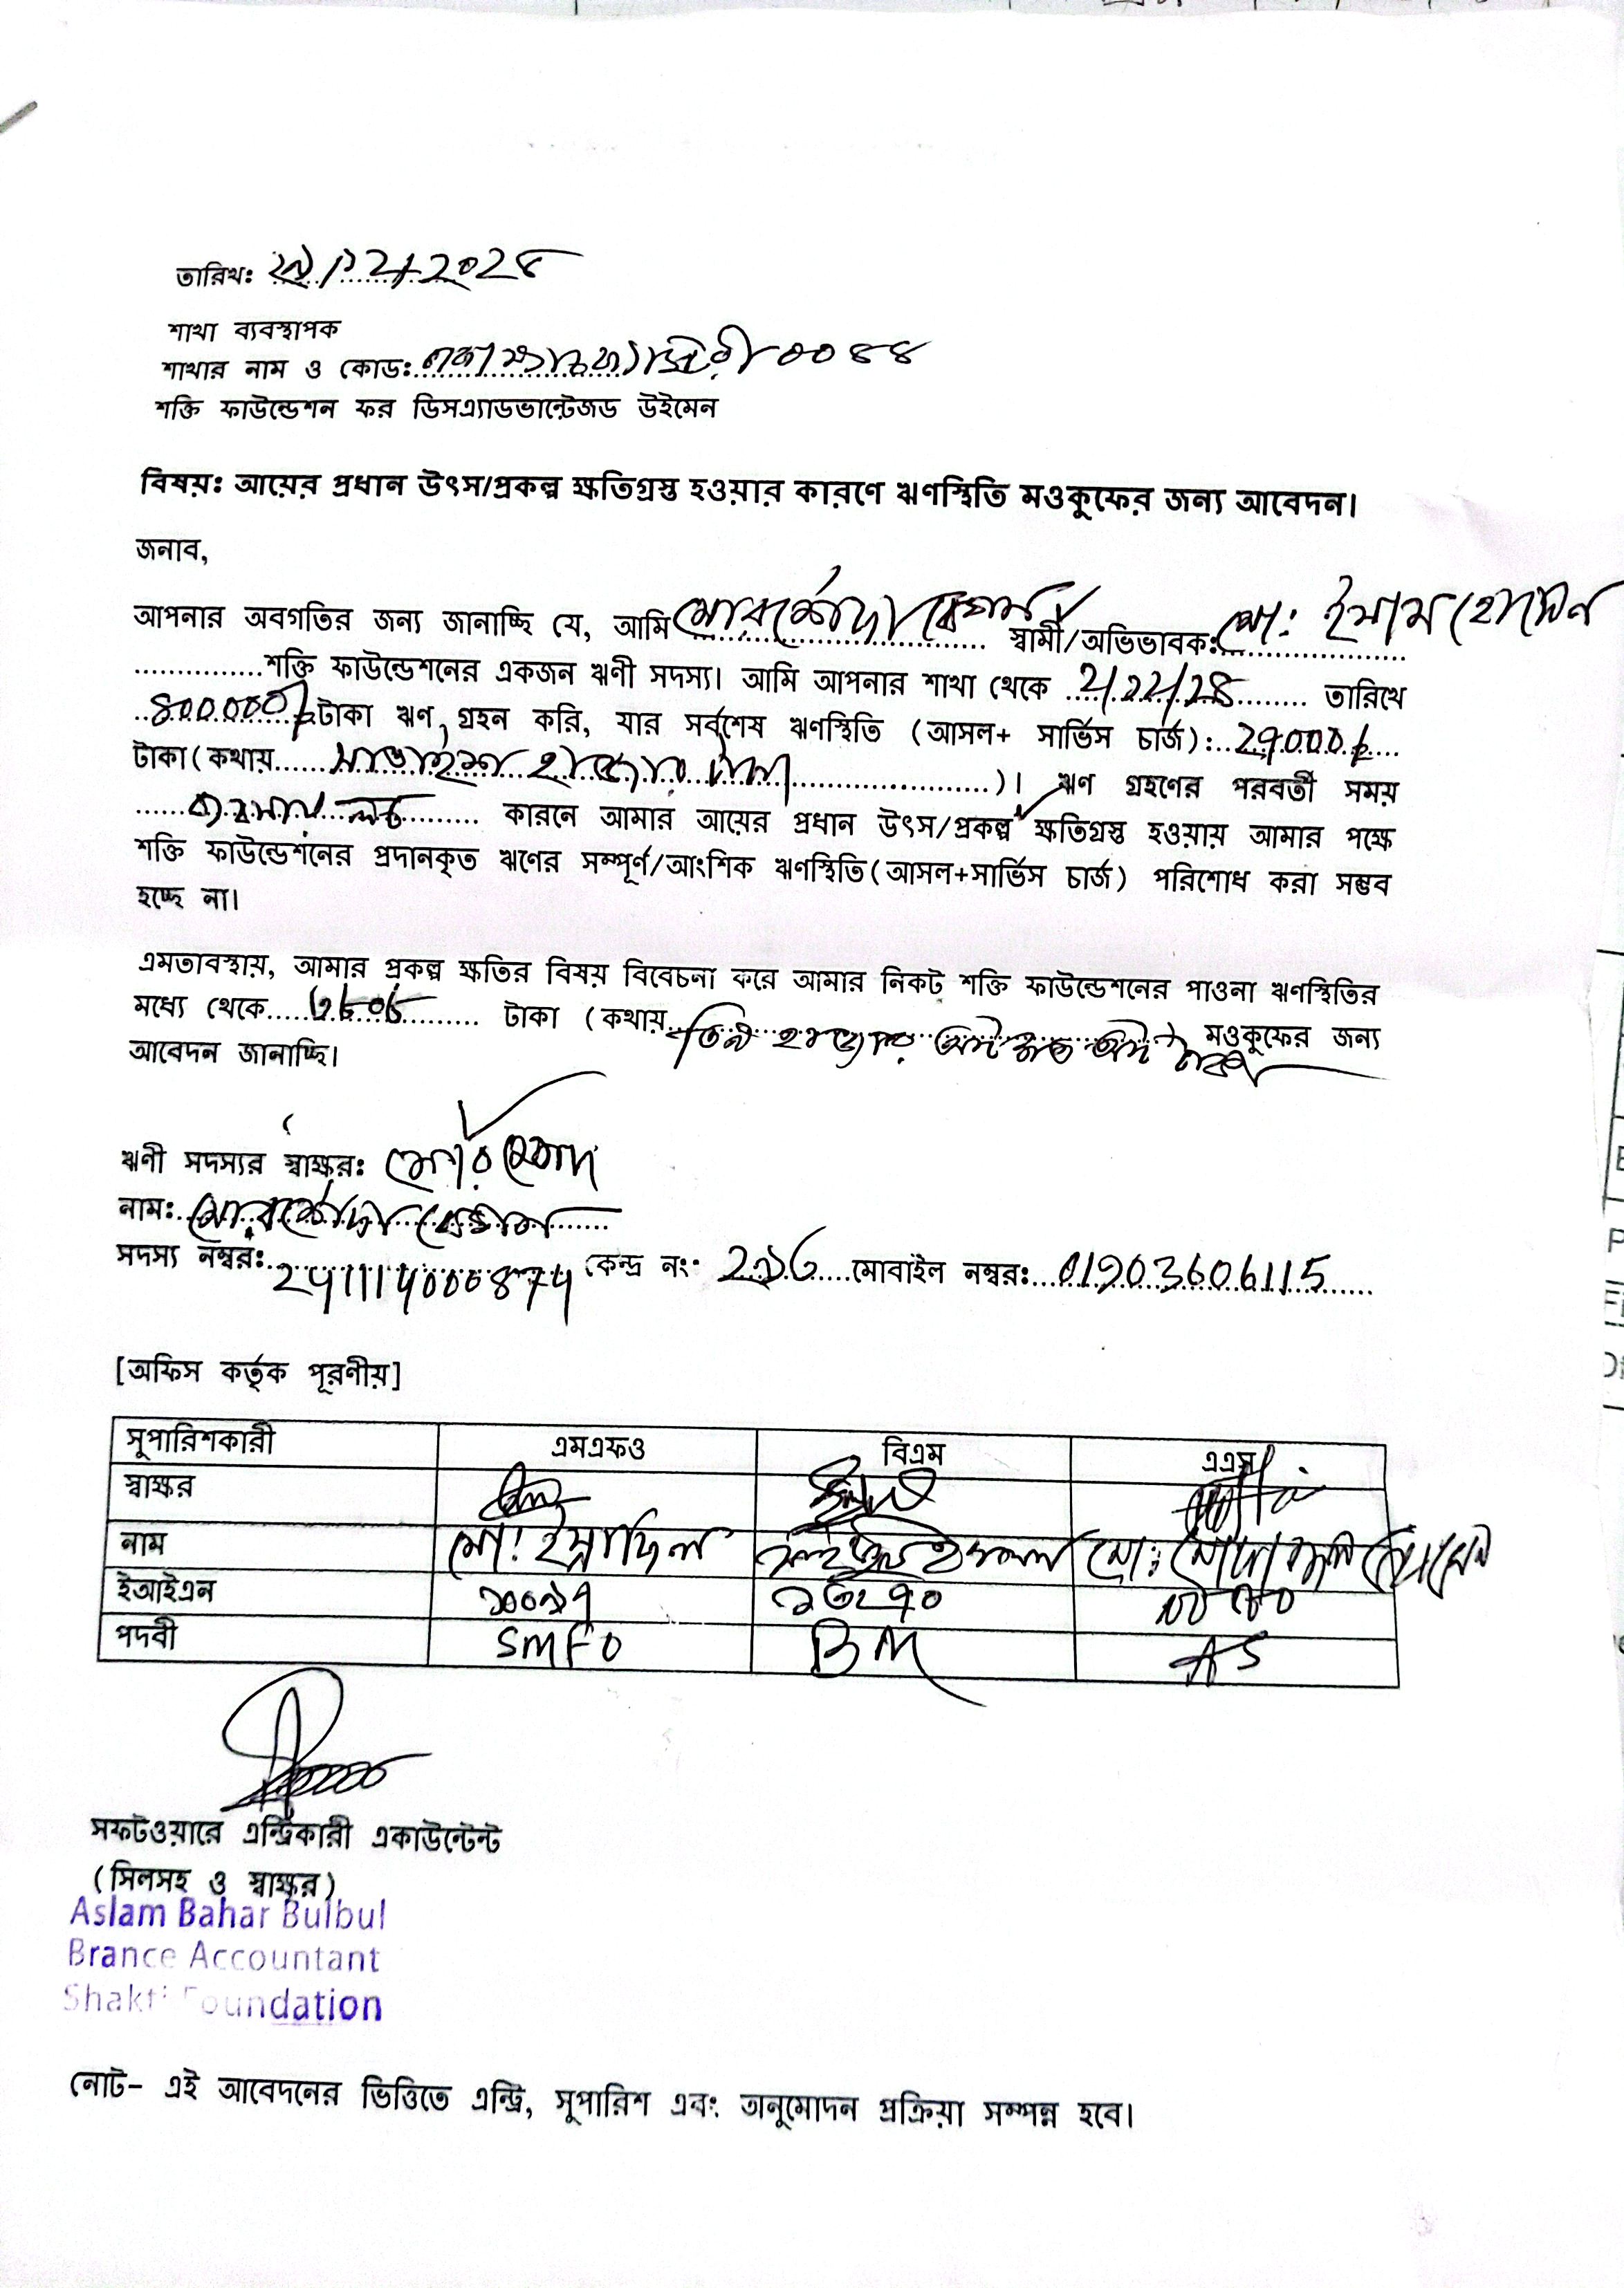 তারিখঃ
শাখা ব্যবস্থাপক
শাখার নাম ও কোডঃ ০০৪৪
শক্তি ফাউন্ডেশন ফর ডিসএ্যাডভান্টেজড উইমেন
বিষয়ঃ আয়ের প্রধান উৎস/প্রকল্প ক্ষতিগ্রস্ত হওয়ার কারণে ঋণস্থিতি মওকুফের জন্য আবেদন।
জনাব,
আপনার অবগতির জন্য জানাচ্ছি যে, আমি মোরশেদা বেগম স্বামী/অভিভাবকঃ মো: ইমাম হোসেন
শক্তি ফাউন্ডেশনের একজন ঋণী সদস্য। আমি আপনার শাখা থেকে তারিখে
টাকা ঋণ গ্রহন করি, যার সর্বশেষ ঋণস্থিতি (আসল+ সার্ভিস চার্জ):
টাকা(কথায় সাতাইশ হাজার টাকা )। ঋণ গ্রহণের পরবর্তী সময়
কারনে আমার আয়ের প্রধান উৎস/প্রকল্প ক্ষতিগ্রস্ত হওয়ায় আমার পক্ষে
শক্তি ফাউন্ডেশনের প্রদানকৃত ঋণের সম্পূর্ণ/আংশিক ঋণস্থিতি(আসল+সার্ভিস চার্জ) পরিশোধ করা সম্ভব
হচ্ছে না।
এমতাবস্থায়, আমার প্রকল্প ক্ষতির বিষয় বিবেচনা করে আমার নিকট শক্তি ফাউন্ডেশনের পাওনা ঋণস্থিতির
মধ্যে থেকে ৩৮০৮ টাকা (কথায় তিন হাজার আট শত আট টাকা মওকুফের জন্য
আবেদন জানাচ্ছি।
ঋণী সদস্যর স্বাক্ষর: মোরশেদা
নাম: মোরশেদা বেগম
সদস্য নম্বর: কেন্দ্র নং: মোবাইল নম্বর: 01903606115
[অফিস কর্তৃক পূরণীয়]
সুপারিশকারী এমএফও বিএম এএস
স্বাক্ষর
নাম মো: ইসমাইল মো:
ইআইএন
পদবী SMFO BM AS
সফটওয়ারে এন্ট্রিকারী একাউন্টেন্ট
(সিলসহ ও স্বাক্ষর)
Aslam Bahar Bulbul
Brance Accountant
Shakti Foundation
নোট- এই আবেদনের ভিত্তিতে এন্ট্রি, সুপারিশ এবং অনুমোদন প্রক্রিয়া সম্পন্ন হবে।